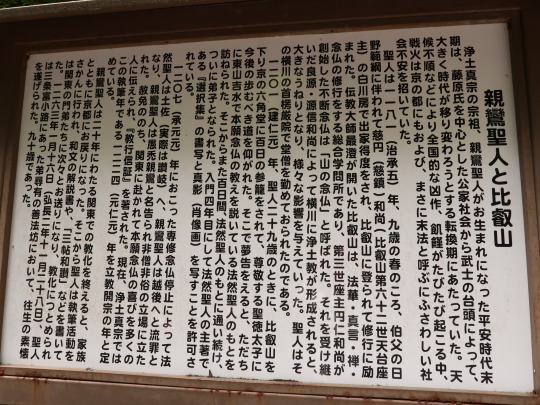 親鸞聖人と比叡山
浄土真宗の宗祖、親鸞聖人がお生まれになった平安時代末
期は、藤原氏を中心とした公家社会から武士の台頭によって、
大きく時代が移り変わろうとする転換期にあたっていた。天
候不順などにより全国的な凶作、飢饉がたびたび起こる中、
戦火は京の都にもおよび、まさに末法と呼ぶにふさわしい社
会不安を招いていた。
聖人は一一八一(治承五)年、九歳の春のころ、伯父の日
野範綱に伴われて慈円(慈鎮)和尚(比叡山第六十二世天台座
主)の白川房で出家得度をされ、比叡山に登られて修行に励
まれた。伝教大師最澄が開いた比叡山は、法華・真言・禅・
念仏の修行をする総合学問所であり、第三世座主円仁和尚が
創始した不断念仏は「山の念仏」と呼ばれた。それを受け継
いだ良源・源信和尚によって横川に浄土教が形成されると、
大きなうねりとなり、様々な影響を与えていった。聖人はそ
の横川の首楞厳院で堂僧を勤めておられたのである。
一二〇一(建仁)年、聖人二十九歳のときに、比叡山を
下り京の六角堂に百日の参籠をされて、尊敬する聖徳太子に
今後の歩むべき道を仰がれた。そこで夢告をえると、ただち
に東山吉水で本願念仏の教えを説いている法然聖人のもとを
訪ねられた。そこからまた百日間、法然聖人のもとに通い続け、
ついに弟子となられた。入門四年目にして法然聖人の主著で
ある『選択集』の書写と真影(肖像画)を写すことを許さ
れている。
一二〇七(承元元)年におこった専修念仏停止によって法
然聖人は土佐(実際は讃岐)へ、親鸞聖人は越後へと流罪と
なり、親鸞聖人は愚禿親鸞と名告られ非僧非俗の立場に立た
れた。赦免ののち、関東に赴かれて本願念仏の喜びを多くの
人に伝えられ、『教行信証』を著された。現在、浄土真宗では
この執筆年である一二二四(元仁元)年を立教開宗の年と定
めている。
親鸞聖人は二十年にわたる関東での教化を終えると、家族
とともに京都にお戻りになった。そこから聖人は執筆活動を
さかんに行われ、和文の解説書や、「ご和讃」などを書いて
は関東の門弟たちに次々とお送りになり、教化につとめられ
た。一二六三年一月十六日(弘長二年十一月二十八日)、聖人
は三条富小路にあった弟尋有の善法坊において、往生の素懐
を遂げられた。九十歳であった。